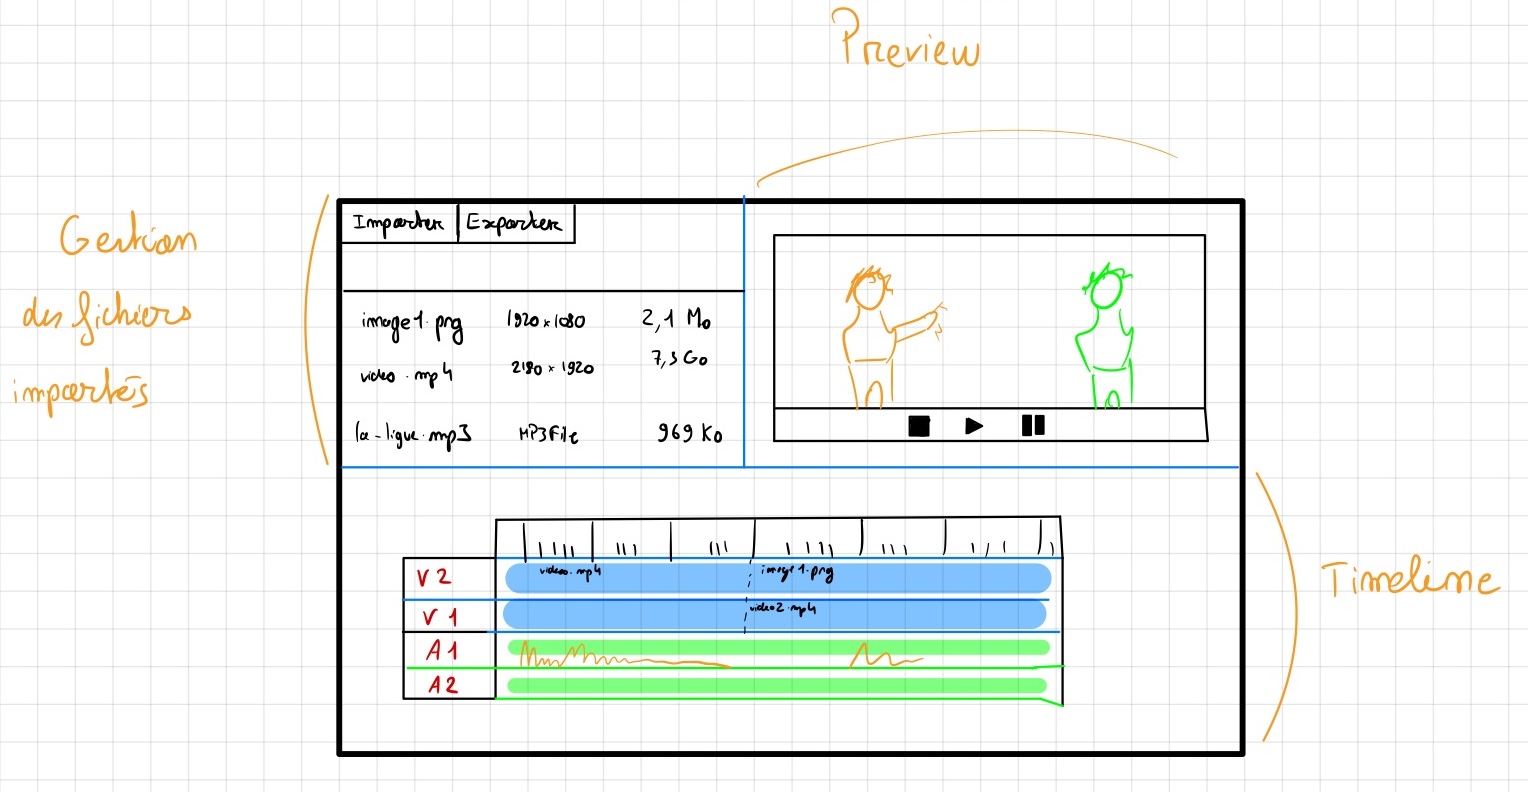 Preview
Gestion
des fichiers
importés
Importer Exporter
image1.png 1920x1080 2,1 Mo
video.mp4 2180x1920 7,3 Go
la-ligue.mp3 MP3File 969 Ko
Timeline
V2 video.mp4 image1.png
V1 video2.mp4
A1
A2